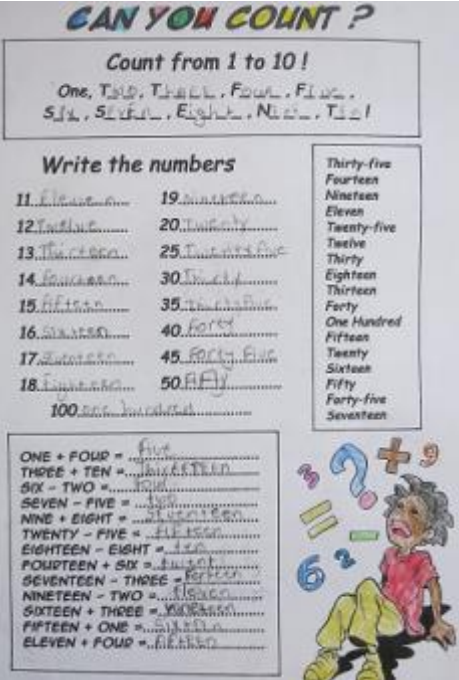 CAN YOU COUNT ?
Count from 1 to 10 !
One, Two, Three, Four, Five,
Six, Seven, Eight, Nine, Ten!
Write the numbers
11. Eleven
12 Twelve
13. Thirteen
14. fourteen
15. fifteen
16. sixteen
17.
18. Eighteen
19. nineteen
20. Twenty
25. Twenty five
30. Thirty
35. thirty five
40. Forty
45. Forty Five
50.
100 one hundred
Thirty-five
Fourteen
Nineteen
Eleven
Twenty-five
Twelve
Thirty
Eighteen
Thirteen
Forty
One Hundred
Fifteen
Twenty
Sixteen
Fifty
Forty-five
Seventeen
ONE + FOUR = five
THREE + TEN =
SIX - TWO = four
SEVEN - FIVE = two
NINE + EIGHT = seventeen
TWENTY - FIVE = fifteen
EIGHTEEN - EIGHT = ten
FOURTEEN + SIX =
SEVENTEEN - THREE =
NINETEEN - TWO = eleven
SIXTEEN + THREE = nineteen
FIFTEEN + ONE = Sixteen
ELEVEN + FOUR = fifteen
3 ? + 9
= -
6 2